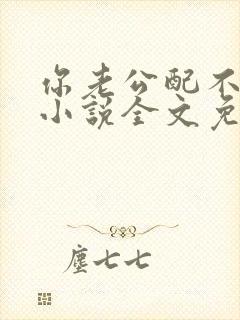 你老公配不
小說全文免
塵七七